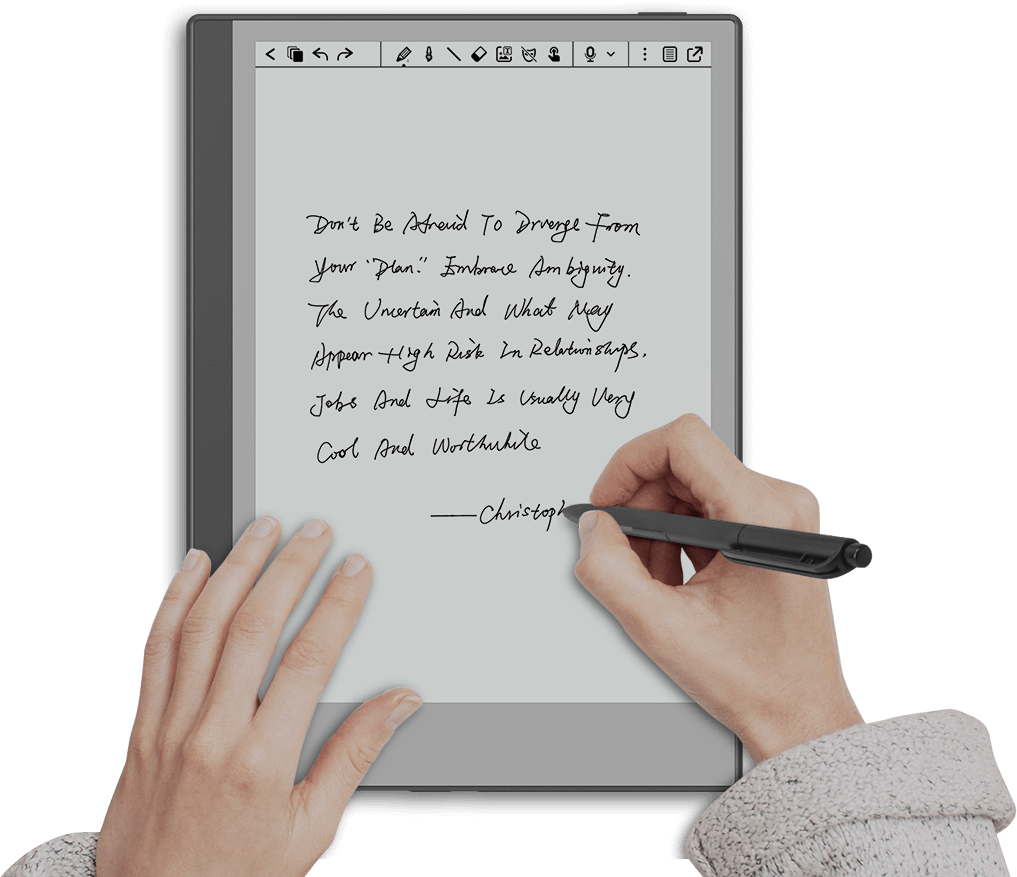 Don't Be Afraid To Diverge From
Your "Plan." Embrace Ambiguity.
The Uncertain And What May
Appear High Risk In Relationships,
Jobs And Life Is Usually Very
Cool And Worthwhile
—Christoph